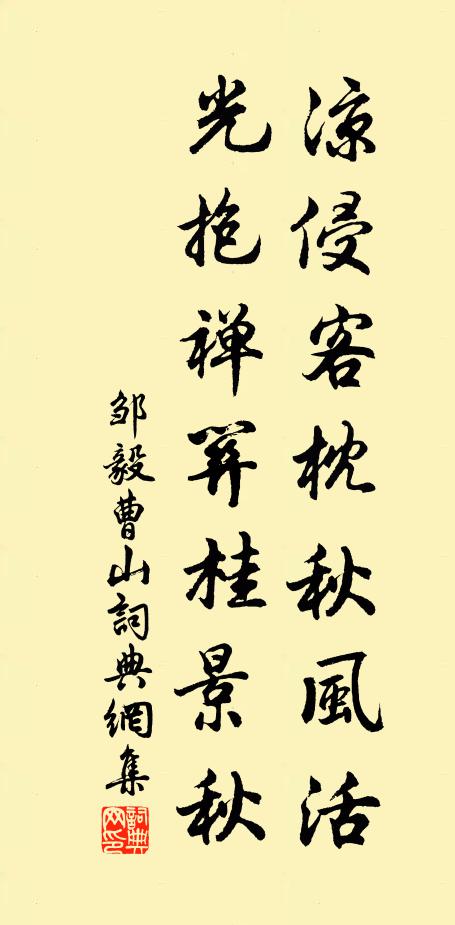 涼侵客枕秋風活
光抱禪關桂景秋
邹毅曹山詞典網集
詞典網印